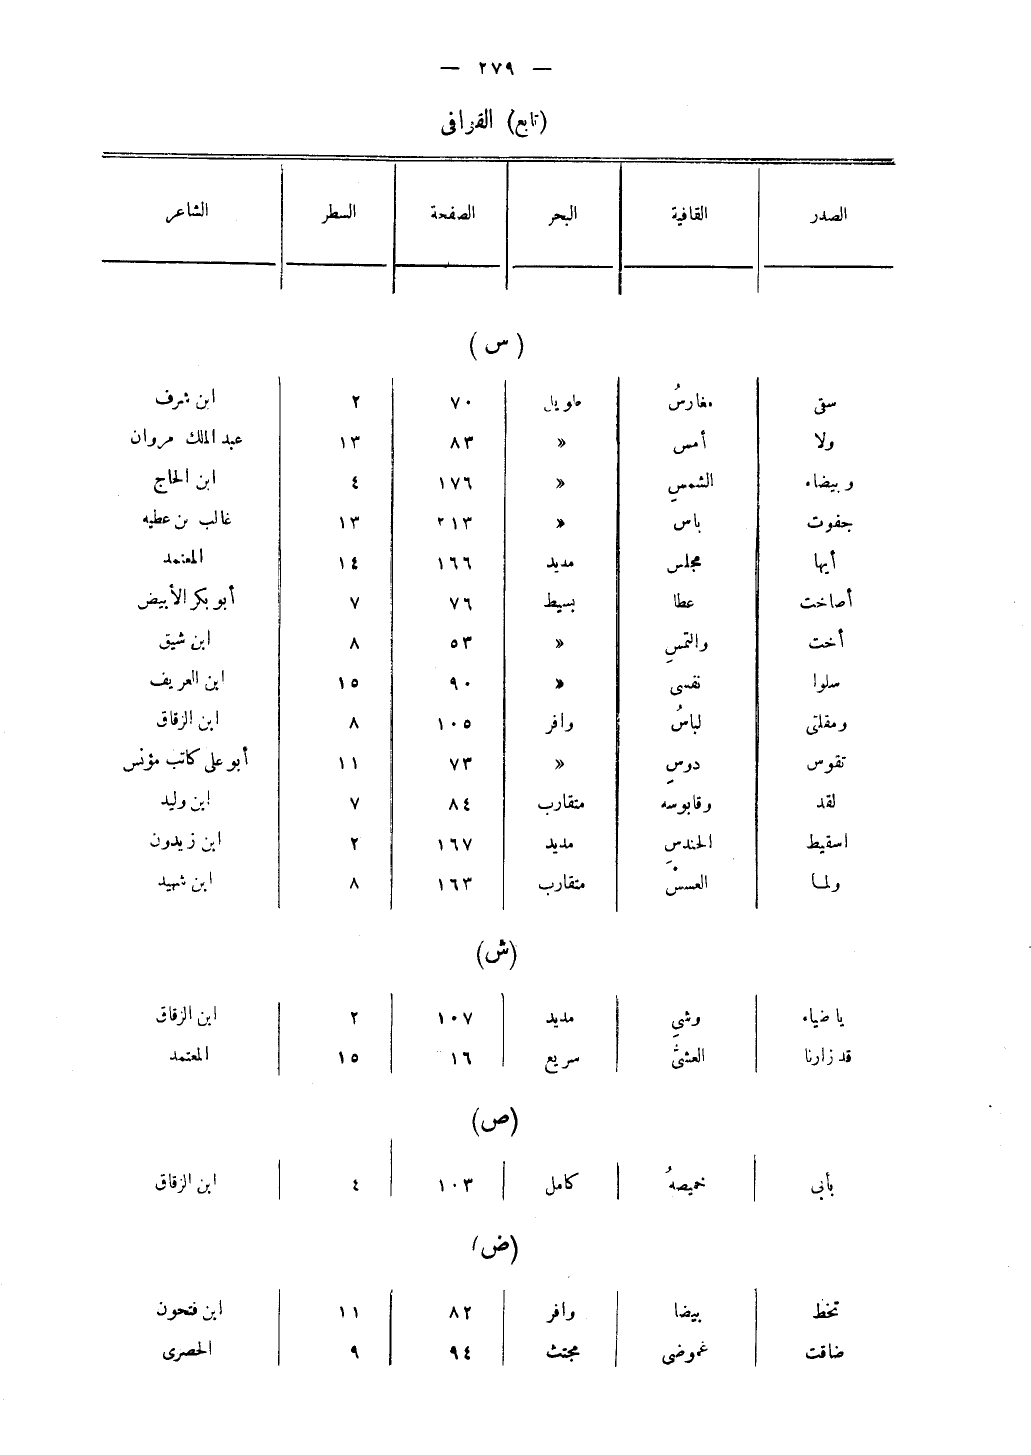 — ٢٧٩ —
(تابع) القرافى
الصدر القافية البحر الصفحة السطر الشاعر
(س)
سقى مغارسُ طويل ٧٠ ٢ ابن شرف
ولا أمس » ٨٣ ١٣ عبد الملك مروان
وبيضاء الشمسِ » ١٧٦ ٤ ابن الحاج
جفوت باس » ٢١٣ ١٣ غالب بن عطيه
أيها مجلس مديد ١٦٦ ١٤ المعتمد
أصاخت عطا بسيط ٧٦ ٧ أبو بكر الأبيض
أخت والتمسِ » ٥٣ ٨ ابن شيق
سلوا نفسى » ٩٠ ١٥ ابن العريف
ومقلتى لباسُ وافر ١٠٥ ٨ ابن الزقاق
تقوس دوسِ » ٧٣ ١١ أبو على كاتب مؤنس
لقد وقابوسه متقارب ٨٤ ٧ ابن وليد
اسقيط الحندسِ مديد ١٦٧ ٢ ابن زيدون
ولما العسسْ متقارب ١٦٣ ٨ ابن شهيد
(ش)
يا ضياء وشىِ مديد ١٠٧ ٢ ابن الزقاق
قد زارنا العشىُّ سريع ١٦ ١٥ المعتمد
(ص)
بأبى خميصهُ كامل ١٠٣ ٤ ابن الزقاق
(ض)
تخط بيضا وافر ٨٢ ١١ ابن فتحون
ضاقت غموضى مجتث ٩٤ ٩ الحصرى